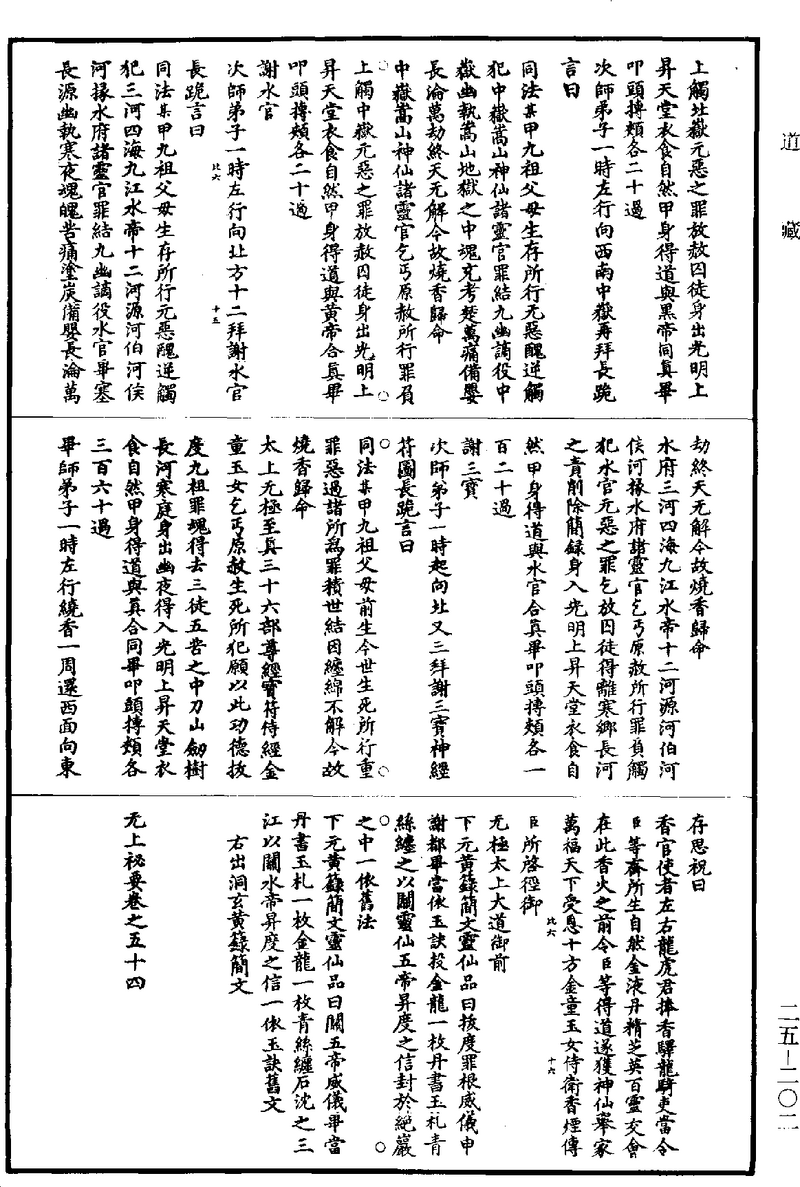 道藏
上觸北嶽元惡之罪放赦囚徒身出光明上
昇天堂衣食自然甲身得道與黑帝同真畢
叩頭摶頰各二十過
次師弟子一時左行向西南中嶽再拜長跪
言曰
同法某甲九祖父母生存所行元惡醜逆觸
犯中嶽嵩山神仙諸靈官罪結九幽謫役中
嶽幽執嵩山地獄之中魂充考楚萬痛備嬰
長淪萬劫終天无解今故燒香歸命
中嶽嵩山神仙諸靈官乞丐原赦所行罪負
上觸中嶽元惡之罪放赦囚徒身出光明上
昇天堂衣食自然甲身得道與黃帝合真畢
叩頭摶頰各二十過
謝水官
次師弟子一時左行向北方十二拜謝水官
比六 十五
長跪言曰
同法某甲九祖父母生存所行元惡醜逆觸
犯三河四海九江水帝十二河源河伯河侯
河掾水府諸靈官罪結九幽謫役水官畢塞
長源幽執寒夜魂魄苦痛塗炭備嬰長淪萬
劫終天无解今故燒香歸命
水府三河四海九江水帝十二河源河伯河
侯河掾水府諸靈官乞丐原赦所行罪負觸
犯水官元惡之罪乞放囚徒得離寒鄉長河
之責削除簡錄身入光明上昇天堂衣食自
然甲身得道與水官合真畢叩頭摶頰各一
百二十過
謝三寶
次師弟子一時起向北又三拜謝三寶神經
符圖長跪言曰
同法某甲九祖父母前生今世生死所行重
罪惡過諸所為罪積世結因纏綿不解今故
燒香歸命
太上无極至真三十六部尊經寶符侍經金
童玉女乞丐原赦生死所犯願以此功德拔
度九祖罪魂得去三徒五苦之中刀山劍樹
長河寒庭身出幽夜得入光明上昇天堂衣
食自然甲身得道與真合同畢叩頭摶頰各
三百六十過
畢師弟子一時左行繞香一周還西面向東
存思祝曰
香官使者左右龍虎君捧香驛龍騎吏當令
臣等齋所生自然金液丹精芝英百靈交會
在此香火之前令臣等得道遂獲神仙舉家
萬福天下受恩十方金童玉女侍衛香煙傳
比六 十六
臣所啓徑御
无極太上大道御前
下元黃籙簡文靈仙品曰拔度罪根威儀申
謝都畢當依玉訣投金龍一枚丹書玉札青
絲纏之以關靈仙五帝昇度之信封於絕巖
之中一依舊法
下元黃籙簡文靈仙品曰關五帝威儀畢當
丹書玉札一枚金龍一枚青絲纏石沈之三
江以關水帝昇度之信一依玉訣舊文
右出洞玄黃籙簡文
无上祕要卷之五十四
二五－二〇二